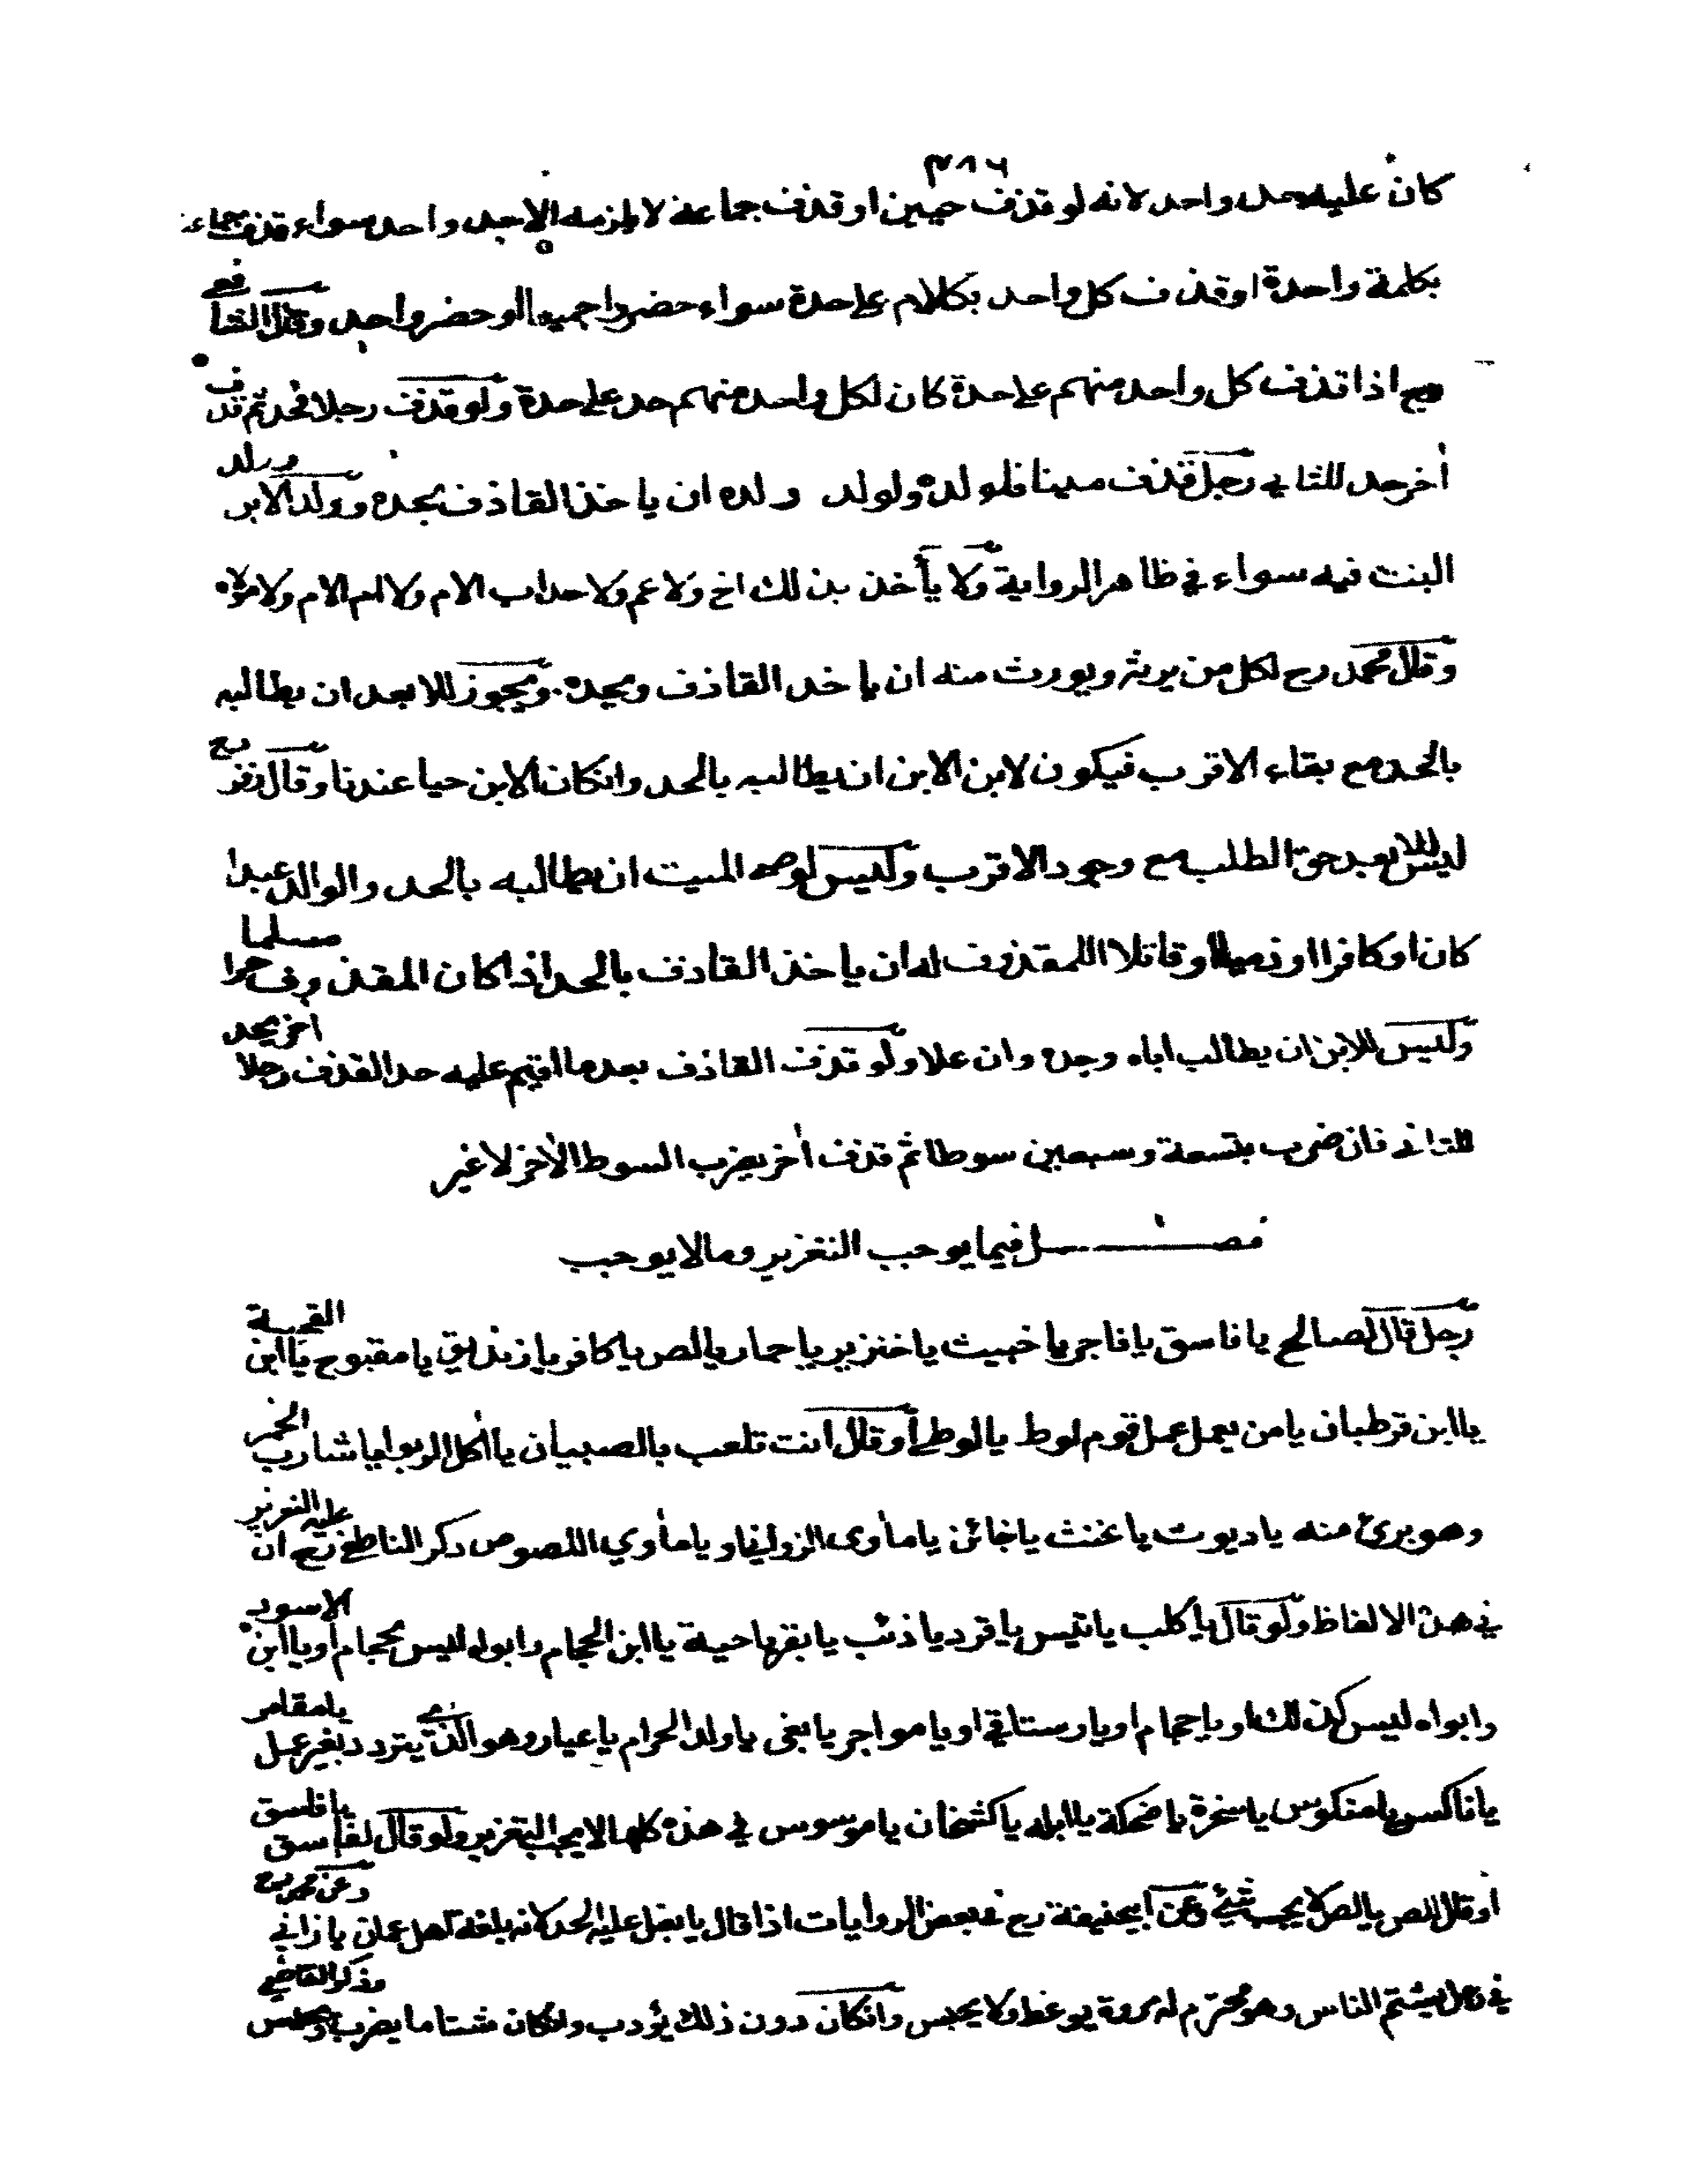 ٣٨٦
كان عليه حد واحد لانه لو قذف حيين او قذف جماعة لا يلزمه الا حد واحد سواء قذف جماعة
بكلمة واحدة او قذف كل واحد بكلام على حدة سواء حضروا جميعا او حضر واحد وقال الشافعي
رح اذا قذف كل واحد منهم على حدة كان لكل واحد منهم حد على حدة ولو قذف رجلا فحد ثم قذف
اخر حد للثاني رجل قذف ميتا فلولده ولولد ولده ان ياخذ القاذف بحده وولد الابن وولد
البنت فيه سواء في ظاهر الرواية ولا يأخذ بذلك اخ ولا عم ولا جد اب الام ولا ام الام ولا مولاه
وقال محمد رح لكل من يرثه ويورث منه ان ياخذ القاذف ويحده ويجوز للابعد ان يطالبه
بالحد مع بقاء الاقرب فيكون لابن الابن ان يطالبه بالحد وانكان الابن حيا عندنا وقال زفر رح
ليس للابعد حق الطلب مع وجود الاقرب وليس لوصي الميت ان يطالبه بالحد والوالد عبدا
كان او كافرا او ذميا او قاتلا للمقذوف له ان ياخذ القاذف بالحد اذا كان المقذوف حرا مسلما
وليس للابن ان يطالب اباه وجده وان علا ولو قذف القاذف بعد ما اقيم عليه حد القذف رجلا اخر يحد
للثاني فان ضرب بتسعة وسبعين سوطا ثم قذف أخر يضرب السوط الأخر لا غير
فصــــل فيما يوجب التعزير وما لا يوجب
رجل قال لصالح يا فاسق يا فاجر يا خبيث يا خنزير يا حمار يا لص يا كافر يا زنديق يا مقبوح يا ابن القحبة
يا ابن قرطبان يا من يعمل عمل قوم لوط يا لوطي أو قال انت تلعب بالصبيان يا أكل الربوا يا شارب الخمر
وهو برئ منه يا ديوث يا مخنث يا خائن يا مأوى الزواني او يا مأوي اللصوص ذكر الناطفي رح ان عليه التعزير
في هذه الالفاظ ولو قال يا كلب يا تيس يا قرد يا ذئب يا بقر يا حية يا ابن الحجام وابوه ليس بحجام أو يا ابن الاسود
وابواه ليس كذلك او يا حجام او يا رستاقي او يا مواجر يا بغى يا ولد الحرام يا عيار وهو الذي يتردد بغير عمل يا مقامر
يا ناكس يا منكوس يا سخرة يا ضحكة يا ابله يا كشخان يا موسوس في هذه كلها لا يجب التعزير ولو قال لفاسق يا فاسق
او قال للص يا لص لا يجب شيئ وعن ابيحنيفة رح في بعض الروايات اذا قال يا بغل عليه الحد لانه بلغة اهل عمان يا زاني وعن محمد رح
في رجل يشتم الناس وهو محترم له مروة يوعظ ولا يحبس وانكان دون ذلك يؤدب وانكان شتاما يضرب ويحبس وذكر القاضي